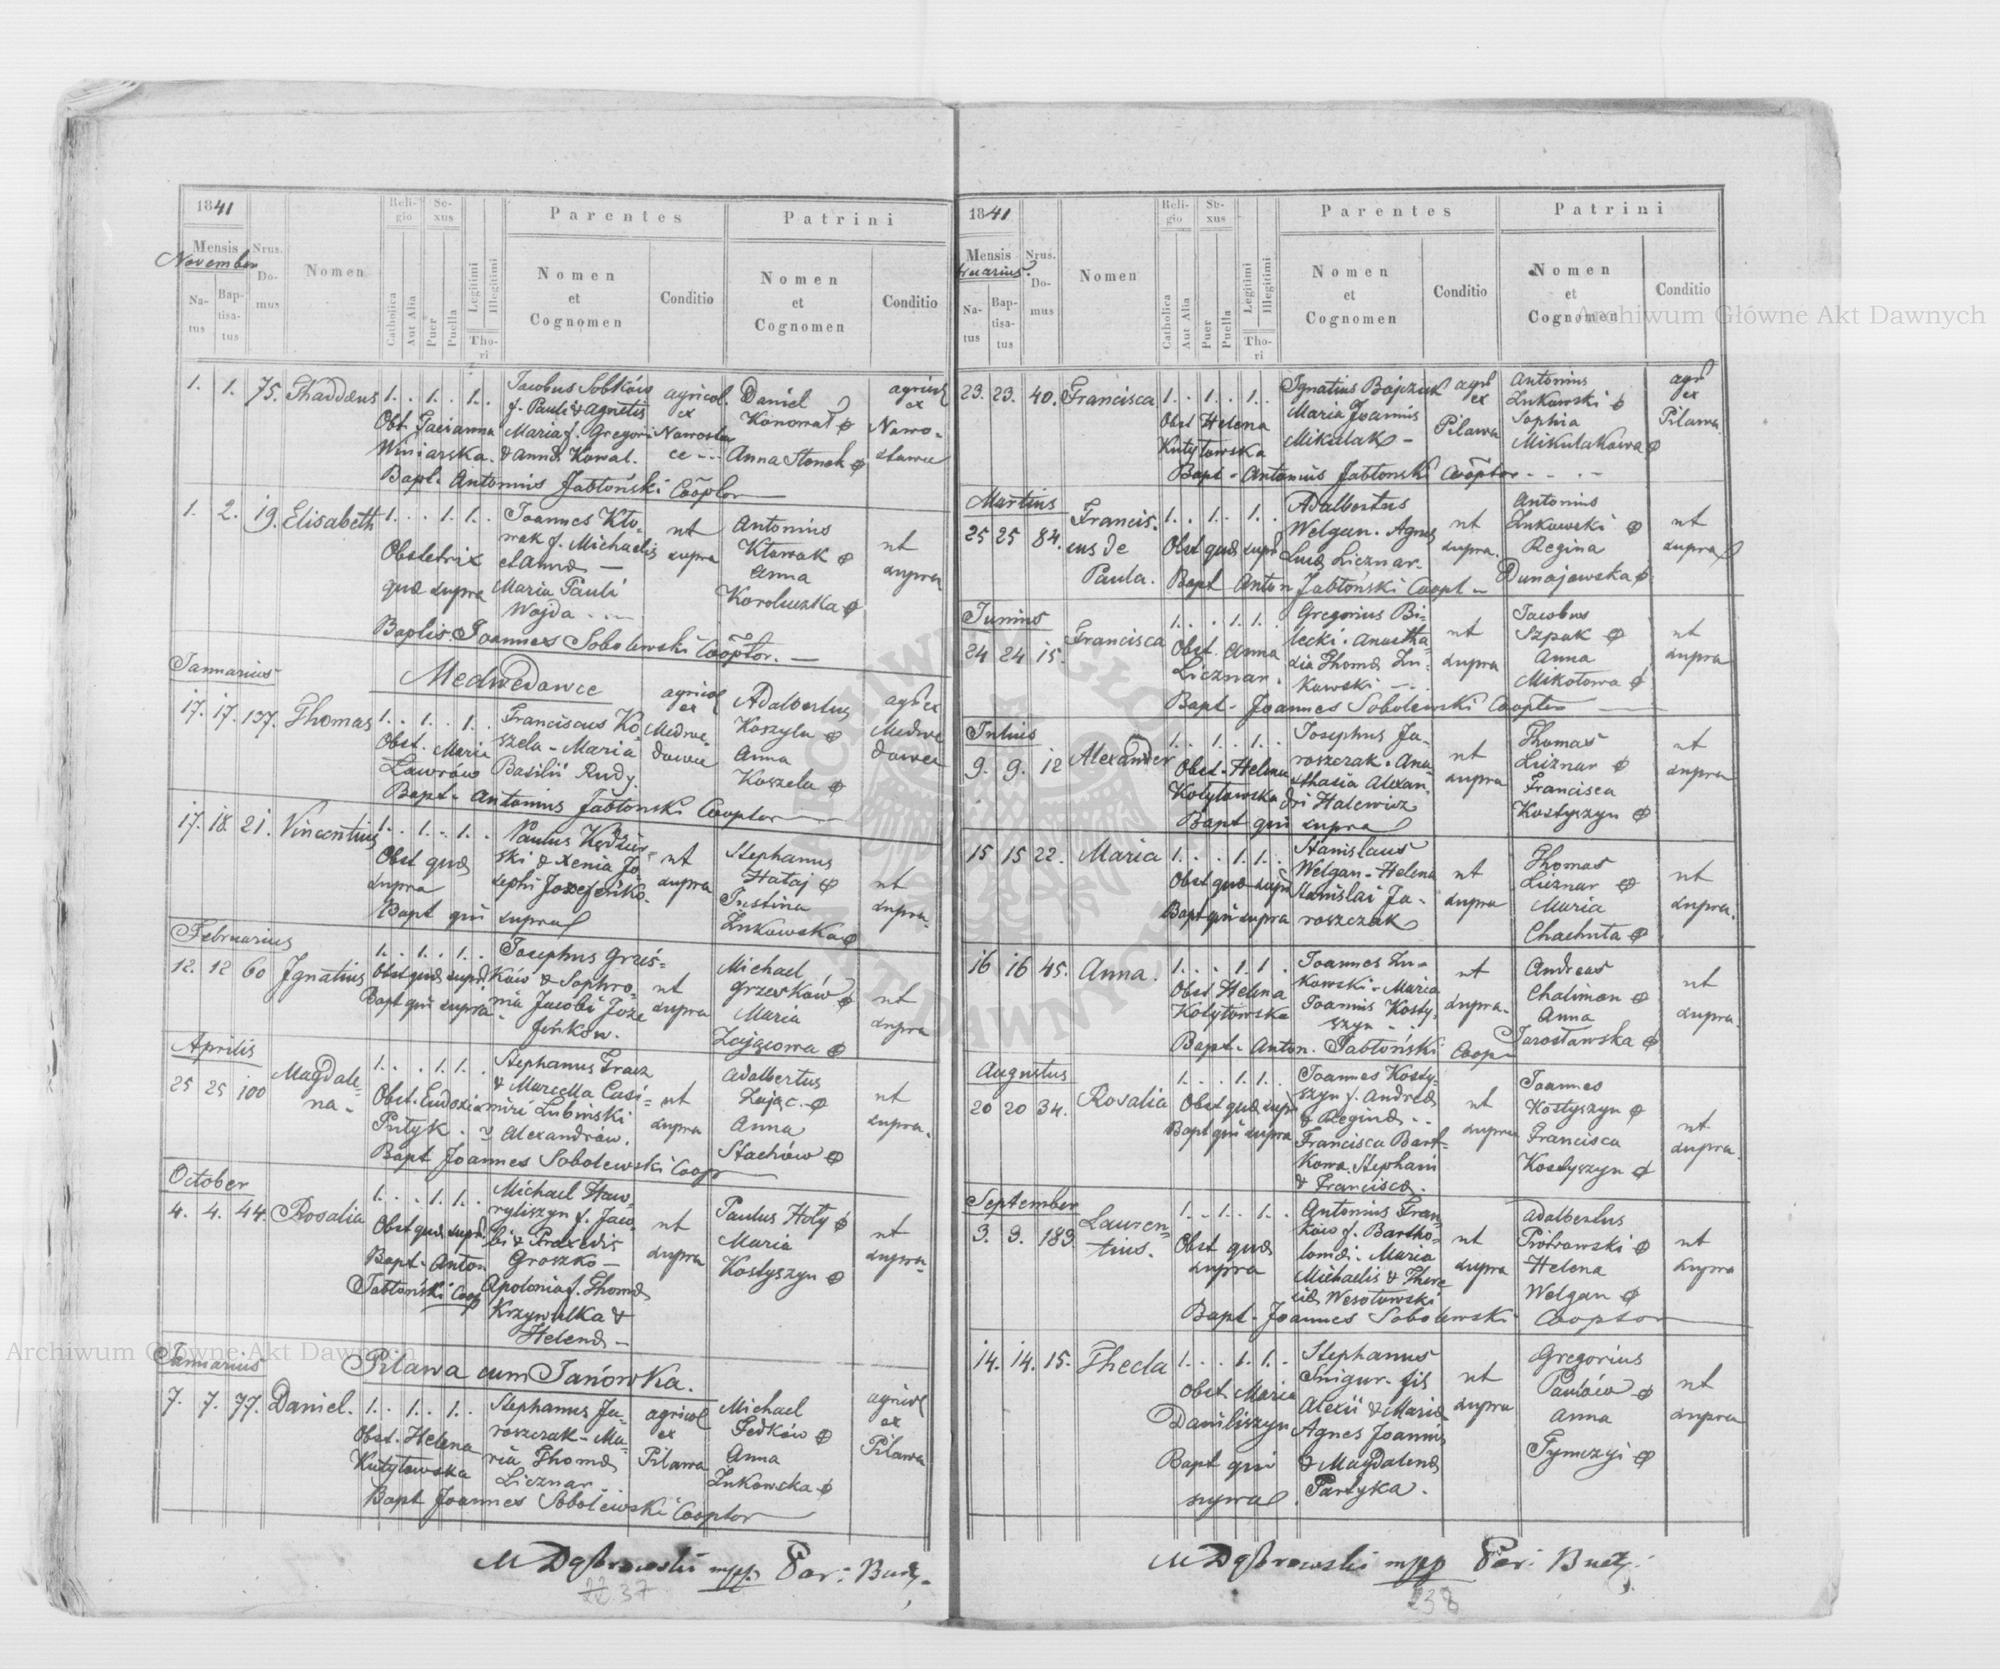 1841
Religio
Sexus
Parentes
Patrini
Mensis
November
Nrus. Domus
Nomen
Catholica
Aut Alia
Puer
Puella
Legitimi
Illegitimi
Thori
Nomen et Cognomen
Conditio
Nomen et Cognomen
Conditio
Natus
Baptisatus
1. 1. 75. Thaddaeus 1. . 1. 1. .
Jacobus Sobków
f. Pauli & Agnetis
Maria f. Gregori
& Annae Kowal.
agricol. ex
Daniel
Konowal
Anna
agricol ex
Winiarska.
Bapt. Antonius Jabłoński Cooptor
1. 2. 19. Elisabeth 1. . . 1. 1. .
Joannes Kło-
wak f. Michaelis
et Annae —
Maria Pauli
Wojda . . —
ut supra
Antonius
Kłowak
Anna
ut supra
Obstetrix
quae supra
Baptis. Joannes Sobolewski Cooptor. —
Januarius
Medwedowce
17. 17. 137. Thomas 1. . 1. . 1. .
Franciscus Ko-
szela - Maria
Basilii Rudy.
agricol ex
Medwe-
dowce
Adalbertus
Koszyla
Anna
Koszela
agr ex
Medwe
dowce
Obst. Maria
Lawrów
Bapt. Antonius Jabłonski Cooptor
17. 18. 21. Vincentius 1. . 1. . 1. .
Paulus
ski & Xenia Jo
sephi
ut supra
Stephanus
Hataj
Justina
Zukowska
ut supra.
Obst quae
supra
Bapt qui supra
Februarius
12. 12 60 Ignatius 1. . 1. . 1. .
Josephus Grześ-
ków & Sophro-
nia Jacobi Joze
feńkow.
ut supra
Michael
Grzesków
Maria
Zającowa
ut supra
Obst quae supr
Bapt qui supra
Aprilis
25 25 100 Magdale-
na - 1. . . 1. 1. .
Stephanus
& Marcella Casi-
miri Lubinski
& Alexandrów.
ut supra
Adalbertus
Zając.
Anna
Stachów
ut supra.
Obst. Eudoxia
Bapt Joannes Sobolewski Coop
October
4. 4. 44. Rosalia 1. . . 1. 1. .
Michael Haw-
ryliszyn f. Jaco-
bi & Praxedis
Groszko —
Apolonia f. Thomae
Krzywulka &
Helenae —
ut supra
Paulus Hoły
Maria
Kostyszyn
ut supra
Obst quae supr.
Bapt. Anton
Jabłoński Coop
Januarius
Pilawa cum Janówka.
7. 7. 77. Daniel. 1. . 1. . 1. .
Stephanus Ja-
roszczak - Ma-
ria Thomae
Licznar.
agricol ex
Pilawa
Michael
Fedków
Anna
Zukowska
agricol ex
Pilawa
Obst. Helena
Kutyłowska
Bapt Joannes Sobolewski Cooptor
M Dąbrowski mpp Par: Bucz.
37
1841
Religio
Sexus
Parentes
Patrini
Mensis
Nrus. Domus
Nomen
Catholica
Aut Alia
Puer
Puella
Legitimi
Illegitimi
Thori
Nomen et Cognomen
Conditio
Nomen et Cognomen
Conditio
Natus
Baptisatus
23. 23. 40. Francisca 1. . . 1. 1. .
Ignatius Bajczuk
Maria Joannis
Mikulak -
agr ex
Pilawa
Antonius
Zukowski
Sophia
Mikulakowa
agr ex
Pilawa.
Obst Helena
Kutyłowska
Bapt - Antonius Jabłonski Cooptor
Martius
25 25 84. Francis-
cus de
Paula. 1. . 1. . 1. .
Adalbertus
Welgan. Agnes
Licznar.
ut supra.
Antonius
Zukowski
Regina
Dunajewska
ut supra
Obst quae supr
Bapt Anton Jabłoński Coopt
Junius
24 24 15. Francisca 1. . . 1. 1.
Gregorius Bi-
lecki. Anastha
sia Thomae Zu-
kowski - . -
ut supra
Jacobus
Szpak
Anna
Mikołowa
ut supra
Obst. Anna
Licznar.
Bapt - Joannes Sobolewski Cooptor
Julius
9. 9. 12 Alexander 1. . 1. . 1. .
Josephus Ja-
roszczak. Ana
sthasia Alexan-
dri Halewicz
ut supra
Thomas
Liznar
Francisca
Kostyszyn
ut supra
Obst - Helena
Kołyłowska
Bapt qui supra
15 15 22. Maria 1. . . 1. 1. .
Stanislaus
Welgan - Helena
Stanislai Ja-
roszczak
ut supra
Thomas
Liznar
Maria
Chachuta
ut supra.
Obst quae supr
Bapt qui supra
16 16 45. Anna. 1. . . 1. 1. .
Joannes Zu-
kowski - Maria
Joannis Kosty-
szyn - .
ut supra.
Andreas
Chaliman
Anna
Jarosławska
ut supra.
Obst Helena
Kołyłowska
Bapt - Anton. Jabłoński Coop
Augustus
20 20 34. Rosalia 1. . . 1. 1. .
Joannes Kosty-
szyn f. Andreae
& Reginae - .
Francisca Bart-
kowa. Stephani
& Franciscae.
ut supra
Joannes
Kostyszyn
Francisca
Kostyszyn
ut supra.
Obst quae supr
Bapt qui supra
September
3. 9. 189 Lauren-
tius. 1. . 1. . 1. .
Antonius Fran-
ków f. Bartho-
lomaei. Maria
Michaelis & There
siae Wesołowski
ut supra
Adalbertus
Piotrowski
Helena
Welgan
ut supra
Obst quae
supra
Bapt - Joannes Sobolewski Cooptor
14. 14. 15. Thecla 1. . . 1. 1. .
Stephanus
Snigur. fil
Alexii & Mariae
Agnes Joannis
& Magdalenae
Partyka.
ut supra
Gregorius
Pawłów
Anna
Tymczyj
ut supra
Obst. Maria
Daniliszyn
Bapt qui
supra
M Dąbrowski mpp Par: Bucz:
238
Archiwum Główne Akt Dawnych
Archiwum Główne Akt Dawnych
ARCHIWUM GŁÓWNE AKT DAWNYCH